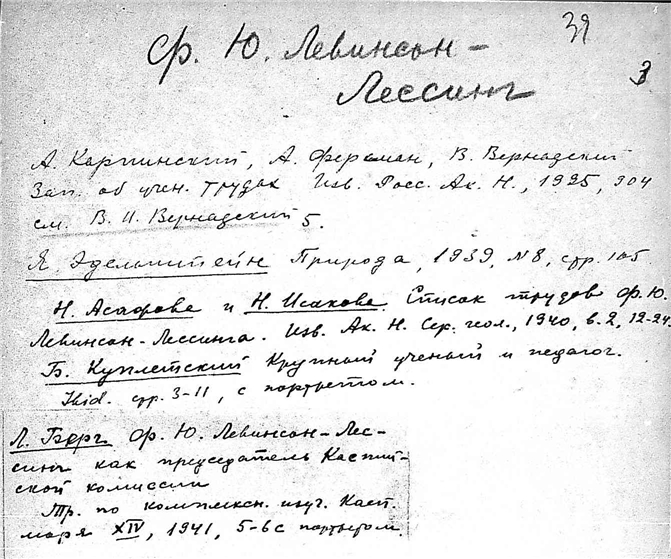 39
3
Ф. Ю. Левинсон-
Лессинг
А. Карпинский, А. Ферсман, В. Вернадский
Зап. об учен. трудах Изв. Росс. Ак. Н., 1925,
см. В. И. Вернадский 5.
Я. Эдельштейн Природа, 1939, №8, стр. 105.
Н. Асафова и Н. Исакова. Список трудов Ф. Ю.
Левинсон-Лессинга. Изв. Ак. Н. Сер. геол., 1940, в. 2, 12-24
Б. Куплетский Крупный ученый и педагог.
Ibid. стр. 3-11, с портретом.
Л. Берг Ф. Ю. Левинсон-Лес-
синг как председатель Каспий-
ской комиссии
Тр. по комплексн. изуч. Касп.
моря XIV, 1941, 5-6 с портретом.